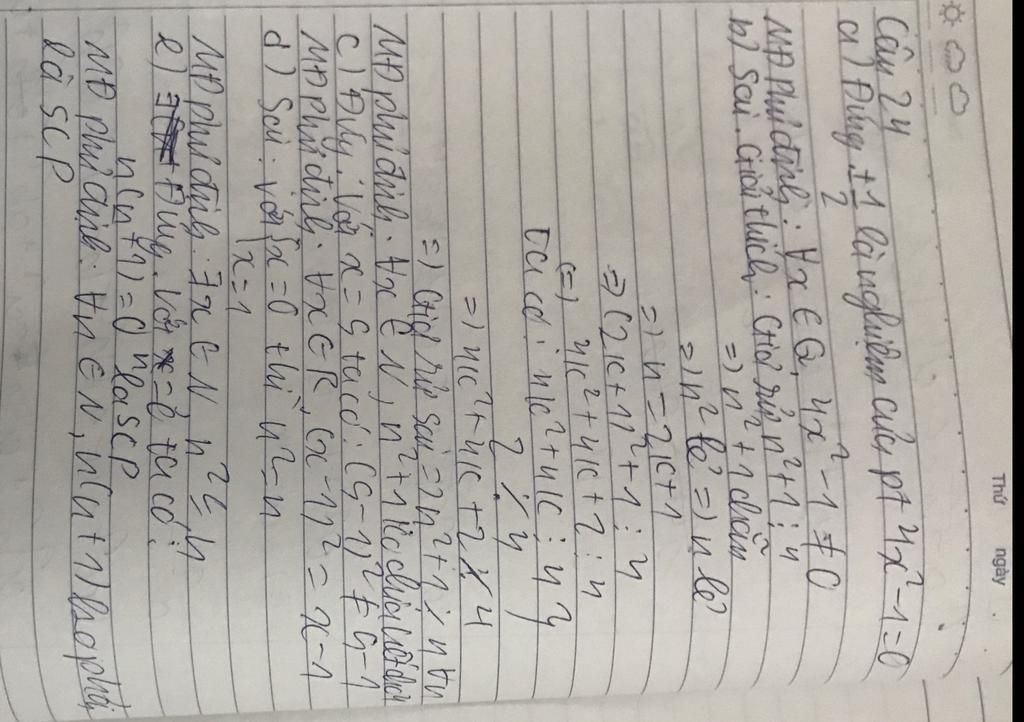 Thứ ngày
Câu 24
a) Đúng ±1/2 là nghiệm của pt 4x²-1=0
MĐ phủ định: ∀x ∈ Q, 4x²-1≠0
b) Sai. Giải thích: Giả sử n²+1⋮4
=) n²+1 chẵn
=) n² lẻ =) n lẻ
=) n=2k+1
=) (2k+1)²+1⋮4
(=) 4k²+4k+2⋮4
Ta có: 4k²+4k⋮4 }
2 ⋮̸ 4
=) 4k²+4k+2 ⋮̸ 4
=) Giả sử sai =) n²+1 ⋮̸ 4 ∀n
MĐ phủ định: ∀x ∈ N, n²+1 k chia hết cho 4
c) Đúng. Với x=5 ta có: (5-1)²≠5-1
MĐ phủ định: ∀x∈R, (x-1)²=x-1
d) Sai. Với {x=0 thì n²=n
x=1
MĐ phủ định: ∃x∈N n²≤n
e) Đúng. Với x=0 ta có:
n(n+1)=0 là SCP
MĐ phủ định: ∀n∈N, n(n+1) k phải
là SCP